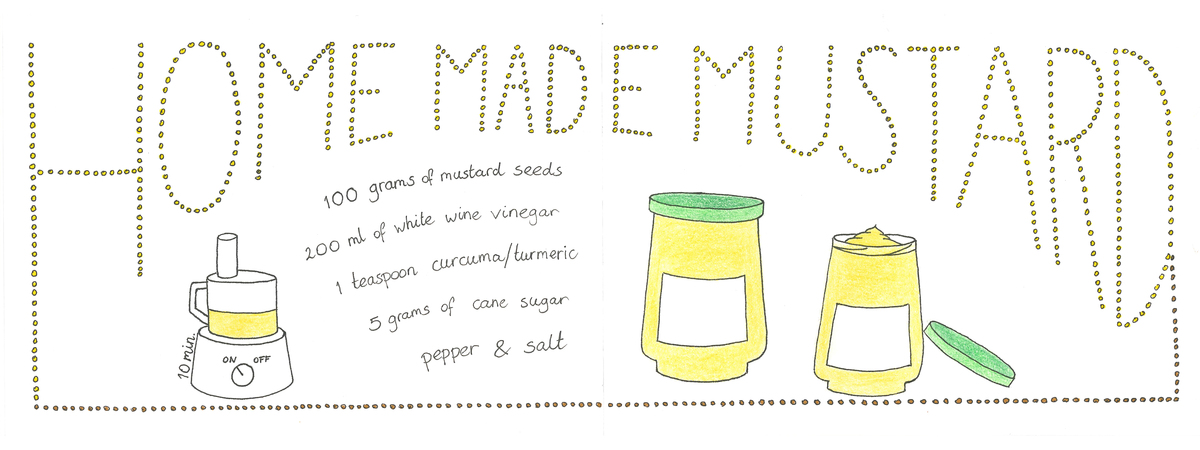 HOME MADE MUSTARD
100 grams of mustard seeds
200 ml of white wine vinegar
1 teaspoon curcuma/turmeric
5 grams of cane sugar
pepper & salt
10 min.
ON OFF